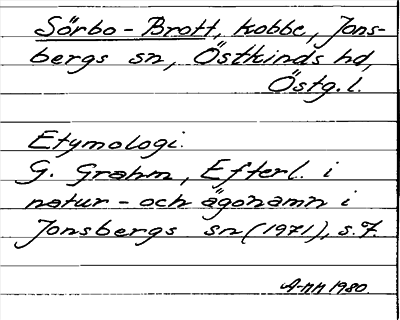 Sörbo-Brott, kobbe, Jons-
bergs sn, Östkinds hd,
Östg. l.
Etymologi.
G. Grahm, Efterl. i
natur- och ägonamn i
Jonsbergs sn (1971), s. 7.
A-NN 1980.